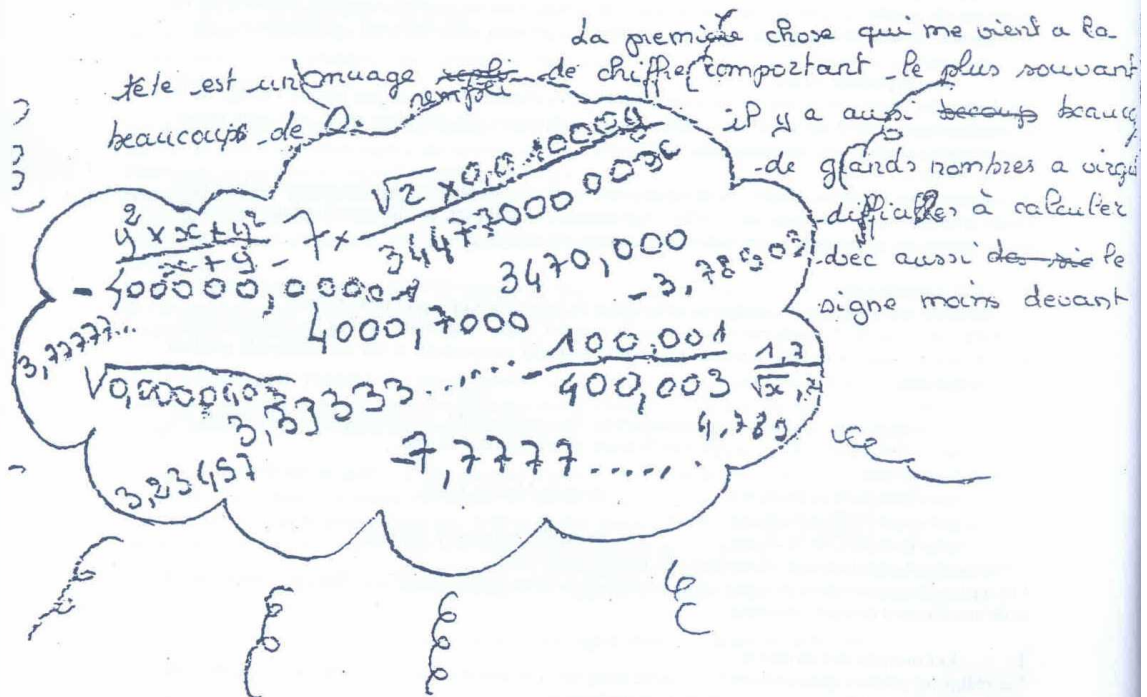 La première chose qui me vient a la
tête est un nuage rempli de chiffre comportant le plus souvant
beaucoups de 0. il y a aussi becoup beauc
de grands nombres a virgu
difficiles à calculer
avec aussi le
signe moins devant
y² × x + y²
x + y
- 7 ×
√2 × 0,0
34473000
- 400000,00001
3470,000
- 3,78902
4000,7000
3,77777...
√0,0000403
3,33333......
- 100,001
400,003
1,7
√x,4
4,789
3,23457
-7,7777......